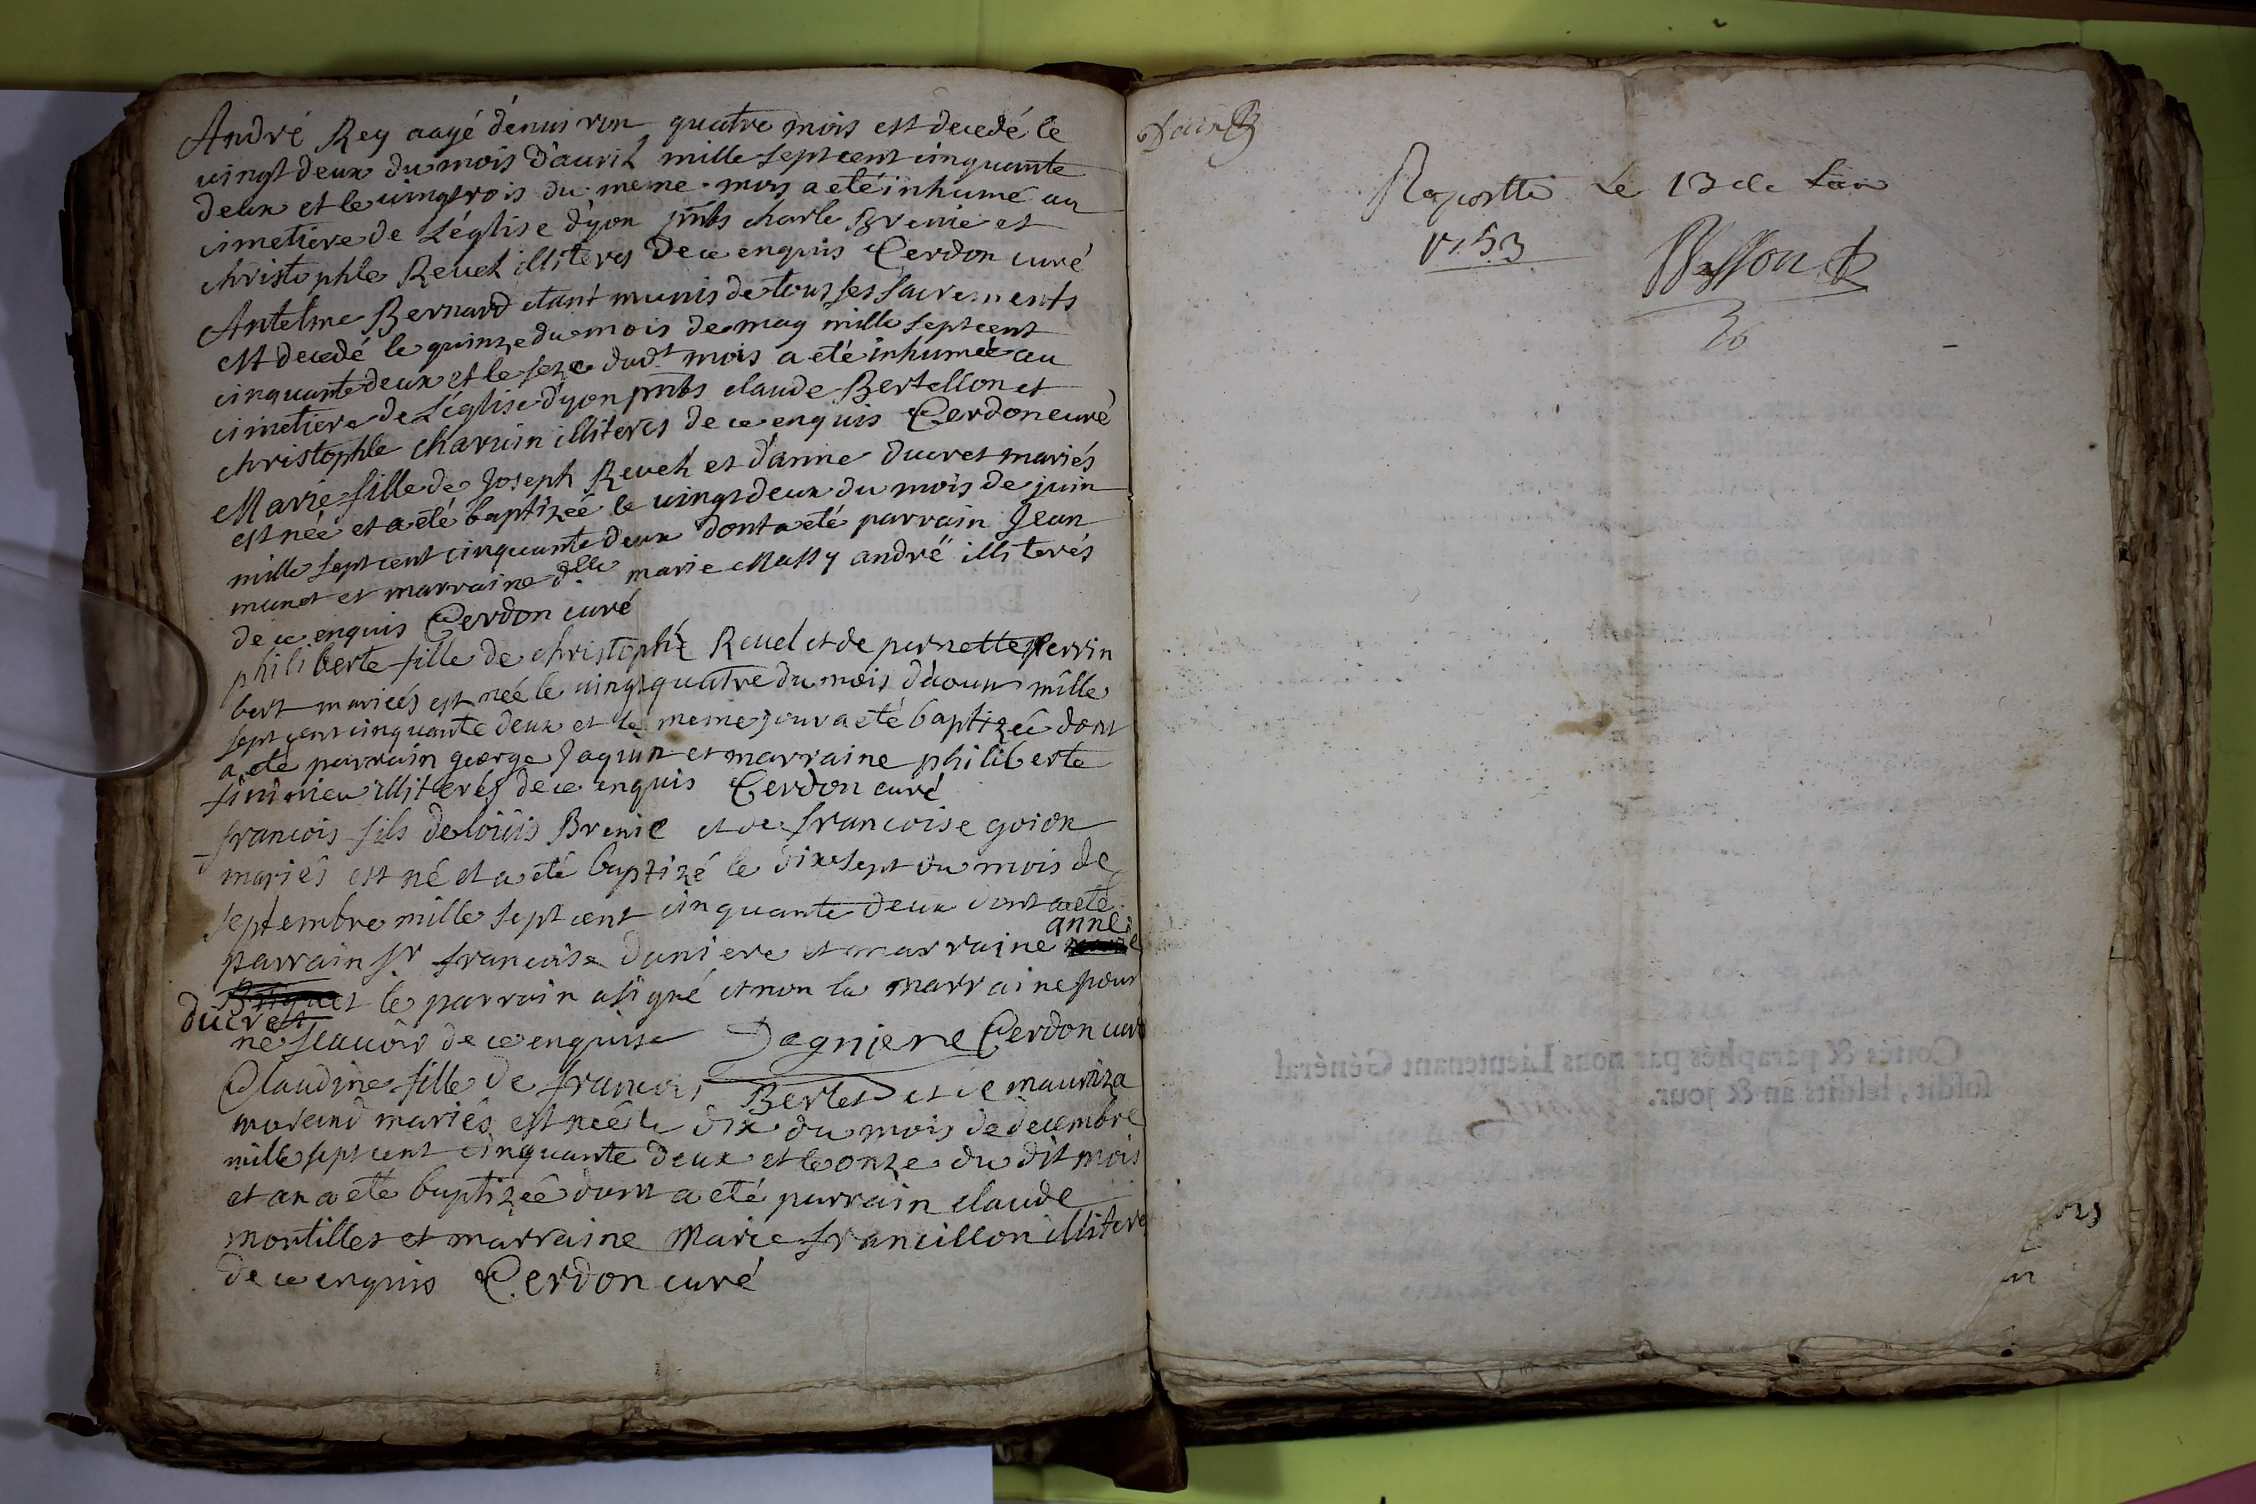 André Rey aagé d'enuiron quatre mois est decedé le
uingt deux du mois d'auril mille sept cent cinquante
deux et le uingtrois du meme mois a eté inhumé au
cimetiere de L'église d'yon pnts charle Brenie et
christophle Reuel illiteres de ce enquis Cerdon curé
Antelme Bernard etant munis de tous ses sacrements
est decedé le quinze du mois de may mille sept cent
cinquante deux et le seze dudt mois a eté inhumée au
cimetiere de L'église d'yon pnts claude Bertellon et
christophle charuin illiteres de ce enquis Cerdon curé
Marie fille de Joseph Reuel et d'anne ducret mariés
est née et a eté baptizéé le uingt deux du mois de juin
mille sept cent cinquante deux dont a eté parrain Jean
munet et marraine dlle marie Massy andré illiterés
de ce enquis Cerdon curé
philiberte fille de christophle Reuel et de pernette perrin
bert mariées est néé le uingt quatre du mois d'aoust mille
sept cent cinquante deux et le meme jour a eté baptizéé dont
a eté parrain george Jaquin et marraine philiberte
illiterés de ce enquis Cerdon curé
francois fils de loüis Brenie et de francoise goion
mariés est né et a eté baptizé le dix sept du mois de
septembre mille sept cent cinquante deux dont a eté
anne
parrain sr francoise daniere et marraine
et le parrain a signé et non la marraine pour
ducrest
ne scauoir de ce enquise Dagniere Cerdon curé
Claudine fille de francois Berlet et de mauriza
morand mariés est néé le dix du mois de decembre
mille sept cent cinquante deux et le onze du dit mois
et an a eté baptizéé dont a eté parrain claude
montillet et marraine Marie francillon illitere
de ce enquis Cerdon curé
Raportté Le 13 de
1753
Cottés & paraphés par nous Lieutenant Général
susdit, lesdits an & jour.